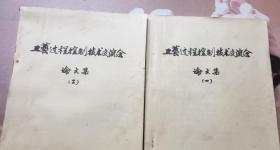 工藝过程控制技术交流会
论文集
工藝过程控制技术交流会
论文集
(一)